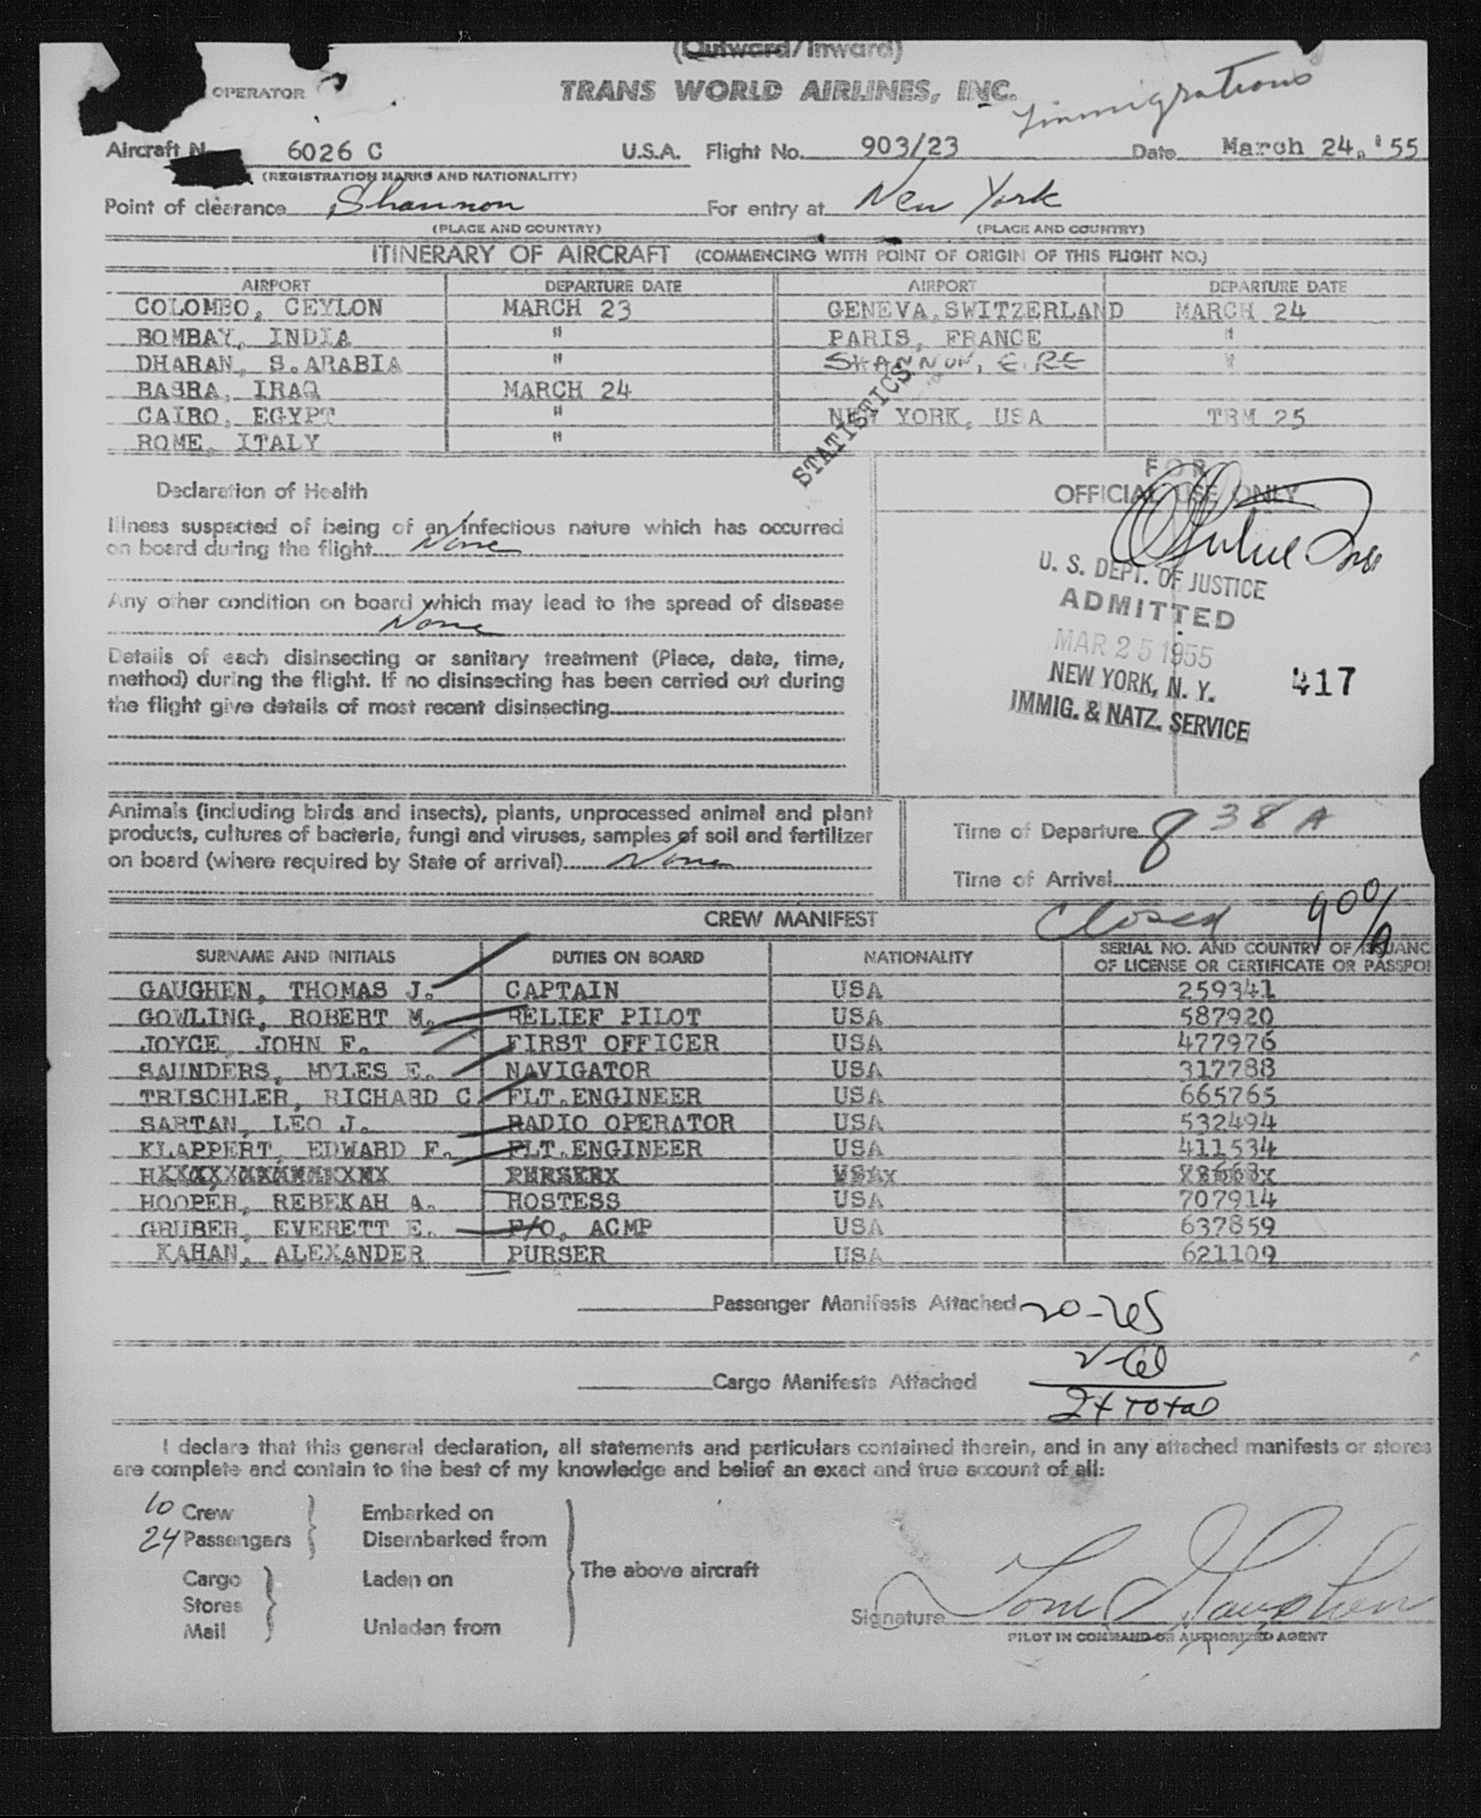 (Outward/Inward)
OPERATOR TRANS WORLD AIRLINES, INC.
Immigrations
Aircraft No. 6026 C U.S.A. Flight No. 903/23 Date March 24, '55
(REGISTRATION MARKS AND NATIONALITY)
Point of clearance Shannon For entry at New York
(PLACE AND COUNTRY) (PLACE AND COUNTRY)
ITINERARY OF AIRCRAFT (COMMENCING WITH POINT OF ORIGIN OF THIS FLIGHT NO.)
AIRPORT DEPARTURE DATE AIRPORT DEPARTURE DATE
COLOMBO, CEYLON MARCH 23 GENEVA, SWITZERLAND MARCH 24
BOMBAY, INDIA " PARIS, FRANCE "
DHARAN, S.ARABIA " SHANNON, EIRE "
BASRA, IRAQ MARCH 24
CAIRO, EGYPT " NEW YORK, USA TRM 25
ROME, ITALY "
STATISTICS
Declaration of Health
FOR
OFFICIAL USE ONLY
Illness suspected of being of an infectious nature which has occurred
on board during the flight None
Any other condition on board which may lead to the spread of disease
None
Details of each disinsecting or sanitary treatment (Place, date, time,
method) during the flight. If no disinsecting has been carried out during
the flight give details of most recent disinsecting
U. S. DEPT. OF JUSTICE
ADMITTED
MAR 25 1955
NEW YORK, N. Y.
IMMIG. & NATZ. SERVICE
417
Animals (including birds and insects), plants, unprocessed animal and plant
products, cultures of bacteria, fungi and viruses, samples of soil and fertilizer
on board (where required by State of arrival) None
Time of Departure 8 38 A
Time of Arrival
Closed 900/A
CREW MANIFEST
SURNAME AND INITIALS DUTIES ON BOARD NATIONALITY SERIAL NO. AND COUNTRY OF ISSUANC
OF LICENSE OR CERTIFICATE OR PASSPO
GAUGHEN, THOMAS J. CAPTAIN USA 259341
GOWLING, ROBERT M. RELIEF PILOT USA 587920
JOYCE, JOHN F. FIRST OFFICER USA 477976
SAUNDERS, MYLES E. NAVIGATOR USA 317788
TRISCHLER, RICHARD C. FLT.ENGINEER USA 665765
SARTAN, LEO J. RADIO OPERATOR USA 532494
KLAPPERT, EDWARD F. FLT.ENGINEER USA 411534
PURSER USA
HOOPER, REBEKAH A. HOSTESS USA 707914
GRUBER, EVERETT E. F/O, ACMP USA 637859
KAHAN, ALEXANDER PURSER USA 621109
Passenger Manifests Attached 20-
Cargo Manifests Attached
Total
I declare that this general declaration, all statements and particulars contained therein, and in any attached manifests or stores
are complete and contain to the best of my knowledge and belief an exact and true account of all:
10 Crew Embarked on
24 Passengers Disembarked from
The above aircraft
Cargo Laden on
Stores
Mail Unladen from
Signature Tom J Gaughen
PILOT IN COMMAND OR AUTHORIZED AGENT